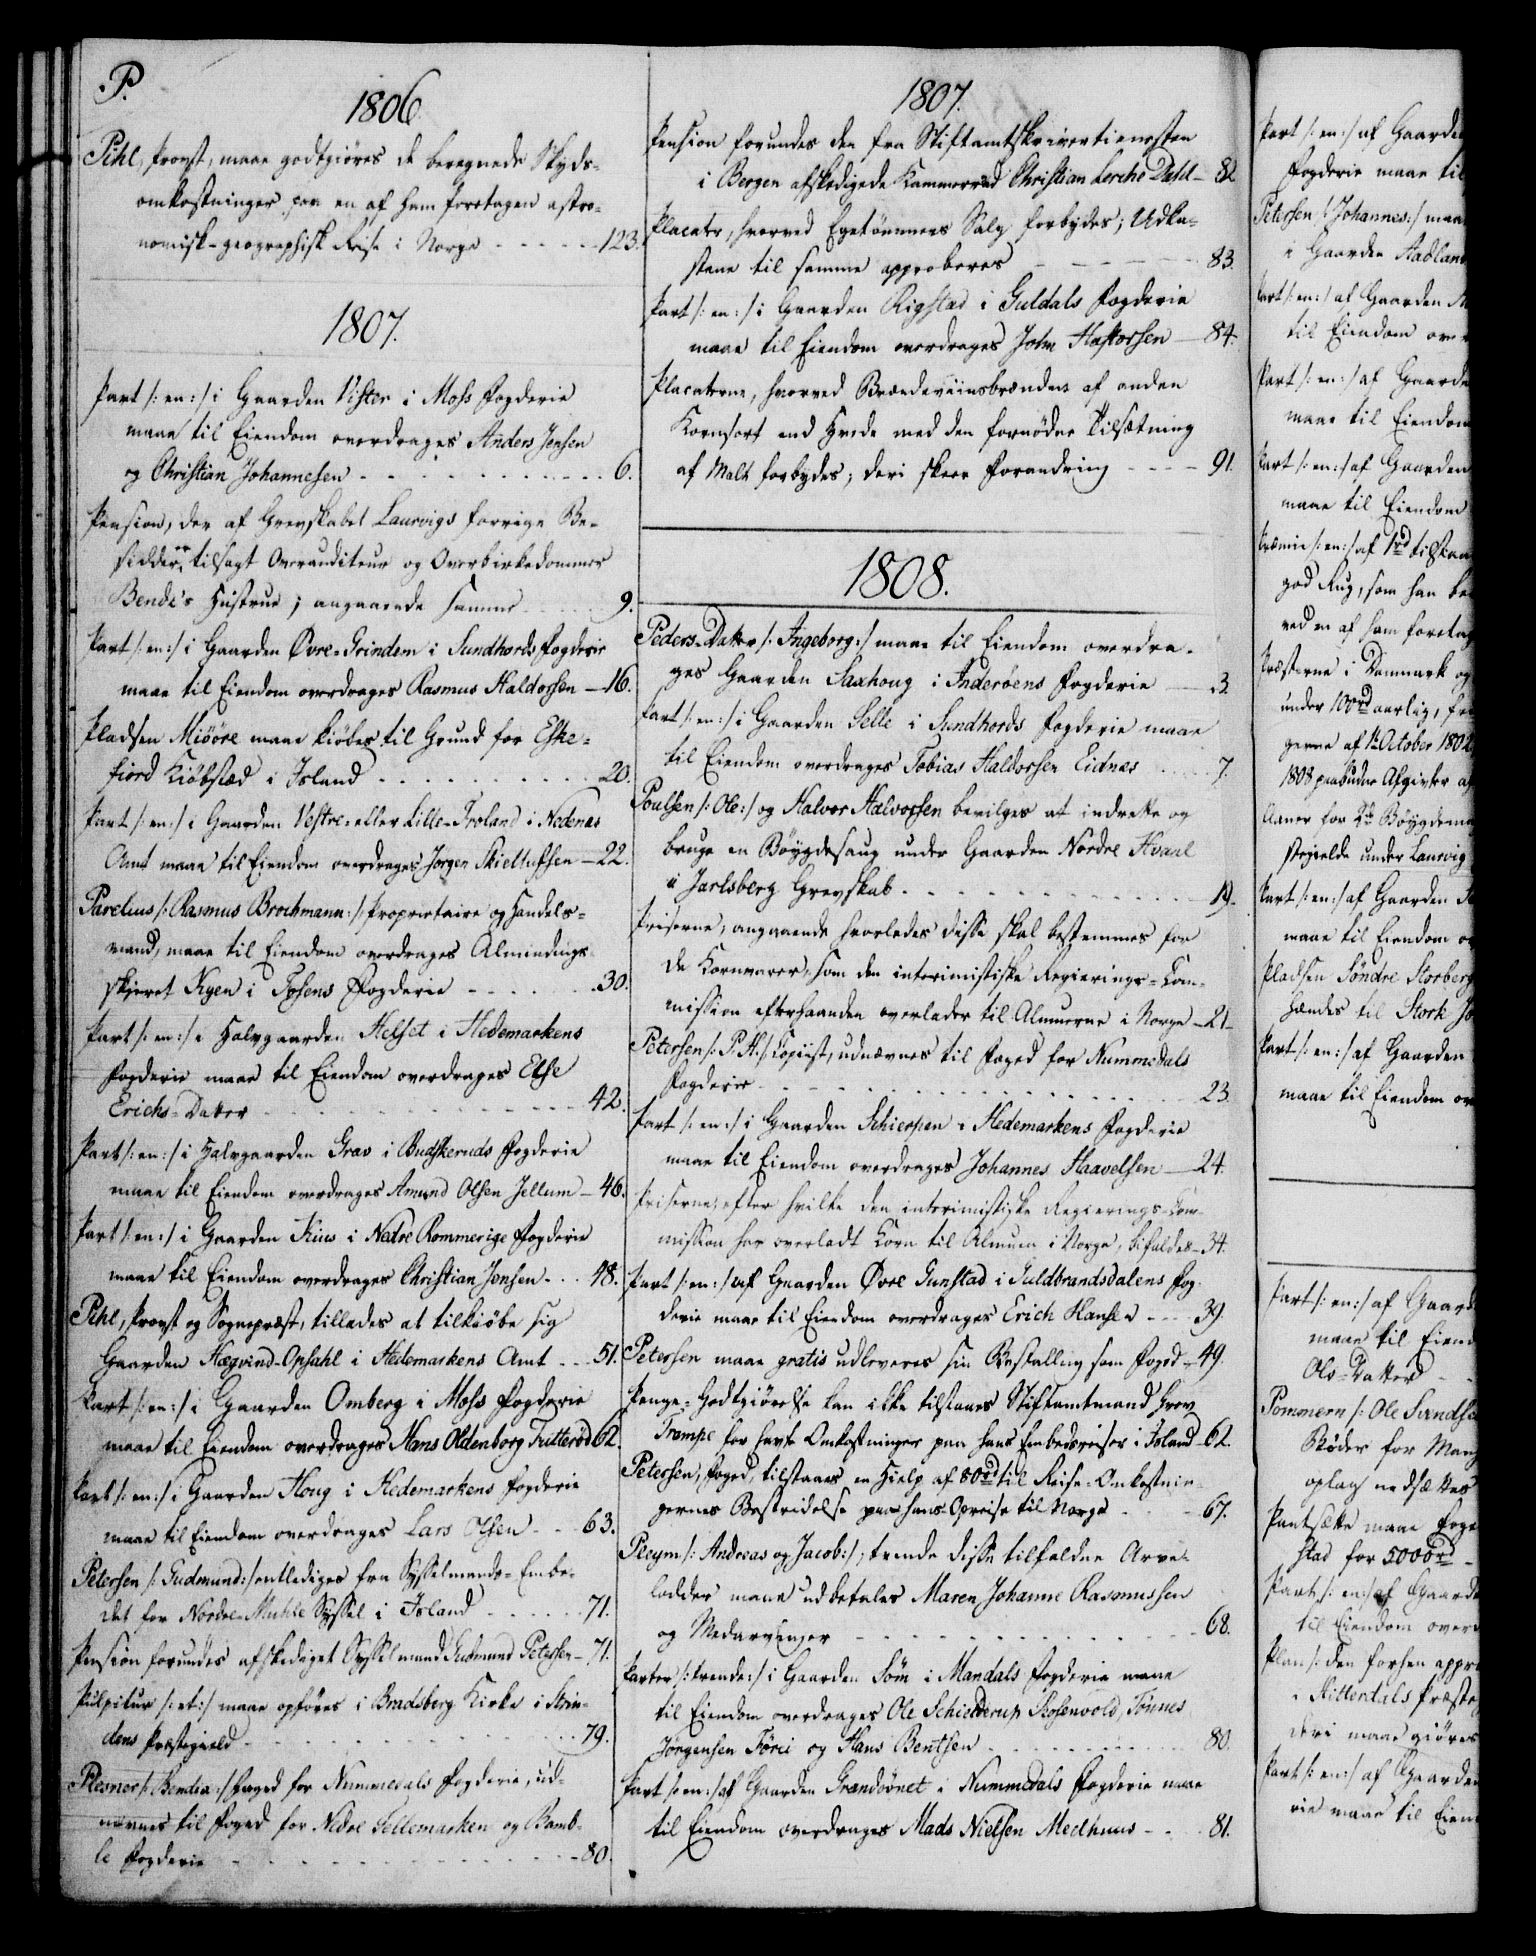 P.
1806.
Pihl, Provst, maae godtgiøres de beregnede Skyds-
omkostninger paa en af ham foretagen astro-
nomisk-geographisk Reise i Norge - - - - - 123.
1807.
Part /: en :/ i Gaarden Vister i Moss Fogderie
maae til Eiendom overdrages Anders Jensen
og Christian Johannesen - - - - - - 6.
Pension, der af Grevskabet Laurvigs forrige Be-
siddere tilsagt Overauditeur og Overbirkedommer
Bende's Hustrue; angaaende samme - - - 9.
Part /: en :/ i Gaarden Øvre-Grindem i Sundhords Fogderie
maae til Eiendom overdrages Rasmus Haldorsen - 16.
Pladsen Miööre maae kiøbes til Grund for Eske-
fiord Kiøbsted i Island - - - - - - 20.
Part /: en :/ i Gaarden Vestre- eller Lille-Troland i Nedenæs
Amt maae til Eiendom overdrages Jørgen Skieltufsen - 22.
Parelius /: Rasmus Brochmann :/ Proprietaire og Handels-
mand, maae til Eiendom overdrages Almindings-
skjæret Kyen i Fosens Fogderie - - - - 30.
Part /: en :/ i Halvgaarden Helset i Hedemarkens
Fogderie maae til Eiendom overdrages Else
Erichs-Datter - - - - - - 42.
Part /: en :/ i Halvgaarden Grav i Budskeruds Fogderie
maae til Eiendom overdrages Amund Olsen Jellum - 46.
Part /: en :/ i Gaarden Kius i Nedre Rommerige Fogderie
maae til Eiendom overdrages Christian Jensen - - - 48.
Pihl, Provst og Sognepræst, tillades at tilkiøbe sig
Gaarden Hægvind-Opsahl i Hedemarkens Amt - - - 51.
Part /: en :/ i Gaarden Omberg i Moss Fogderie
maae til Eiendom overdrages Hans Oldenborg Tritterød 62.
Part /: en :/ i Gaarden Houg i Hedemarkens Fogderie
maae til Eiendom overdrages Lars Olsen - - - 63.
Petersen /: Gudmund :/ entlediges fra Sysselmands-Embe-
det for Nordre-Muhle Syssel i Island - - - - 71.
Pension forundes afskediget Sysselmand Gudmund Petersen - 71.
Pulpitur /: et :/ maae opføres i Bradsberg Kirke i Strin-
dens Præstegield - - - - - - 79.
Plesner /: Bendix :/ Foged for Nummedals Fogderie, ud-
nævnes til Foged for Nedre Tellemarken og Bamb-
le Fogderie - - - - - - 80.
1807.
Pension forundes den fra Stiftamtskrivertienesten
i Bergen afskedigede Kammerraad Christian Lerche Dahl - 82
Placater, hvorved Egetømmers Salg forbydes; Udka-
stene til samme approberes - - - - 83.
Part /: en :/ i Gaarden Rigstad i Guldals Fogderie
maae til Eiendom overdrages John Hastorsen - 84.
Placaterne, hvorved Brændeviinsbrænden af anden
Kornsort end Hvede med den fornødne Tilsætning
af Malt forbydes; deri skeer Forandring - - - - 91.
1808.
Peders-Datter /: Ingeborg :/ maae til Eiendom overdra-
ges Gaarden Saxhoug i Inderøens Fogderie - 3.
Part /: en :/ i Gaarden Selle i Sundhords Fogderie maae
til Eiendom overdrages Tobias Haldorsen Eidnes - - - 7.
Poulsen /: Ole :/ og Halvor Halvorsen bevilges at indrette og
bruge en Bøygdesaug under Gaarden Nordre Hvaal
i Jarlsberg Grevskab - - - - - - 19.
Priserne, angaaende hvorledes disse skal bestemmes for
de Kornvarer, som den interimistiske Regierings-Com-
mission efterhaanden overlader til Almuerne i Norge - 21.
Petersen /: P. H. :/ Copiist, udnævnes til Foged for Nummedals
Fogderie - - - - - - 23.
Part /: en :/ i Gaarden Schierpen i Hedemarkens Fogderie
maae til Eiendom overdrages Johannes Haavelsen - 24.
Priserne, efter hvilke den interimistiske Regierings-Com-
mission har overladt Korn til Almuen i Norge, bifaldes - 34.
Part /: en :/ af Gaarden Øvre Gunstad i Guldbrandsdalens Fog-
derie maae til Eiendom overdrages Erich Hansen - - - 39.
Petersen maae gratis udleveres sin Bestalling som Foged - 49.
Penge-Godtgiørelse kan ikke tilstaaes Stiftamtmand Grev
Trampe for havte Omkostninger paa hans Embedsreiser i Island - 62.
Petersen, Foged, tilstaaes en Hielp af 80rd til Reise-Omkostnin-
gernes Bestridelse paa hans Opreise til Norge - - - 67.
Pleym /: Andreas og Jacob :/, tvende disse tilfaldne Arve-
lodder maae udbetales Maren Johanne Rasmussen
og Medarvinger - - - - - - 68.
Parter /: trende :/ i Gaarden Söm i Mandals Fogderie maae
til Eiendom overdrages Ole Schielderup Rosenvold, Tønnes
Jørgensen Förei og Hans Bentsen - - - - 80.
Part /: en :/ af Gaarden Grandövnet i Nummedals Fogderie maae
til Eiendom overdrages Mads Nielsen Medhuus - - - 81.
Part /: en :/ af Gaarden
Fogderie maae til
Petersen /: Johannes :/ maa
i Gaarden Aadlan
Part /: en :/ af Gaarden
til Eiendom over
Part /: en :/ af Gaarde
maae til Eiendom
Part /: en :/ af Gaarden
maae til Eiendom
Præmie /: en :/ af 1rd tilstaa
god Rug, som han be
ved en af ham foretag
Præsterne i Danmark og
under 100rd aarlig, fri
gerne af 1te October 1802
1808 paabudne Afgivter af
Planer for 2de Bøygdema
Præstegielde under Laurvig
Part /: en :/ af Gaarden
maae til Eiendom ov
Pladsen Söndre Storberg
hændes til Stork Jo
Part /: en :/ af Gaarden
maae til Eiendom ov
Part /: en :/ af Gaard
maae til Eiend
Ols-Datter - -
Pommern /: Ole Svendse
Bøder for Mang
oplag nedsættes
Pantsætte maae Foge
stad for 5000rd -
Part /: en :/ af Gaarde
til Eiendom over
Plan /: den forsen appr
i Hitterdals Præsteg
deri maae giøres
Part /: en :/ af Gaarden
rie maae til Eien